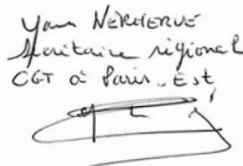 Yann NERHERVE
Secrétaire régional
CGT à Paris-Est